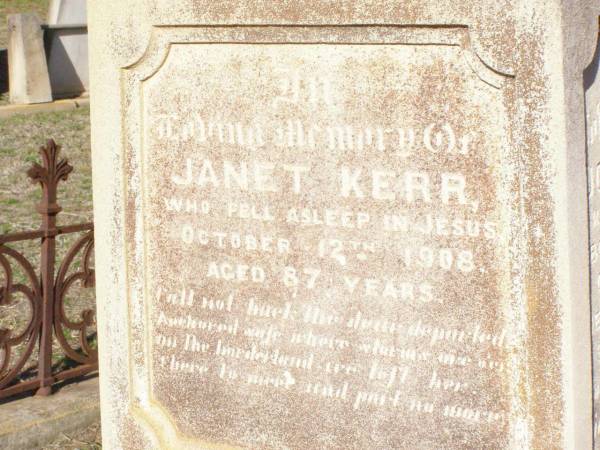 In
Loving Memory Of
JANET KERR,
WHO FELL ASLEEP IN JESUS
OCTOBER 12TH 1908.
AGED 87 YEARS.
Call not back the dear departed
Anchored safe where storms are o'er
On the borderland we left her
There to meet and part no more